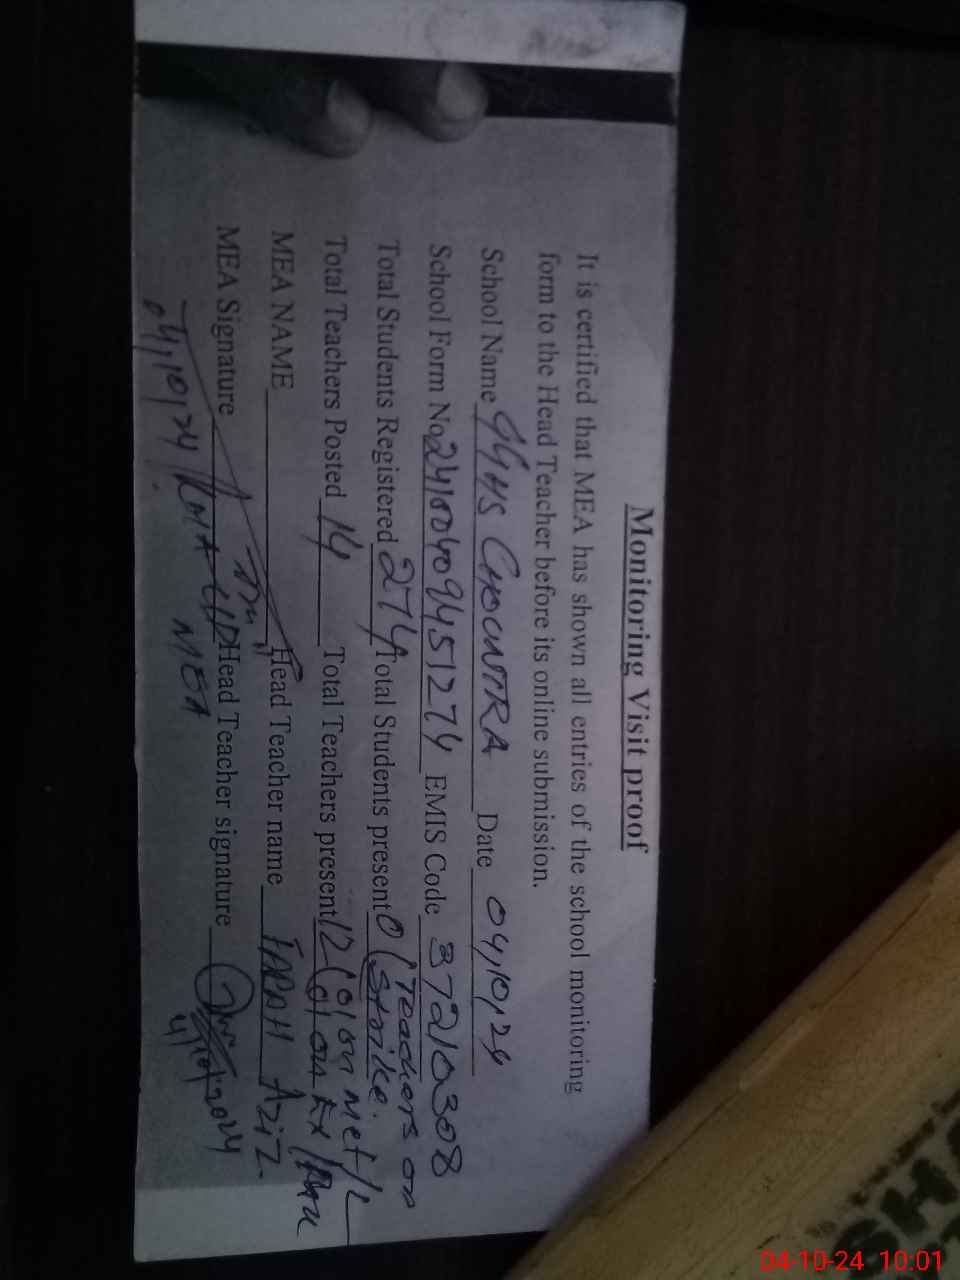 Monitoring Visit proof
It is certified that MEA has shown all entries of the school monitoring
form to the Head Teacher before its online submission.
School Name GGHS CHOUNTRA Date 04,10,24
School Form No 24100409451274 EMIS Code 37210308
Total Students Registered 274 Total Students present 0 (Teachers on
Strike.
Total Teachers Posted 14 Total Teachers present 12 (01 on Met/L
01 on Ex/
MEA NAME Head Teacher name AZIZ
MEA Signature Head Teacher signature
04,10,24 MEA 4/10/2024
SHA
04-10-24 10:01